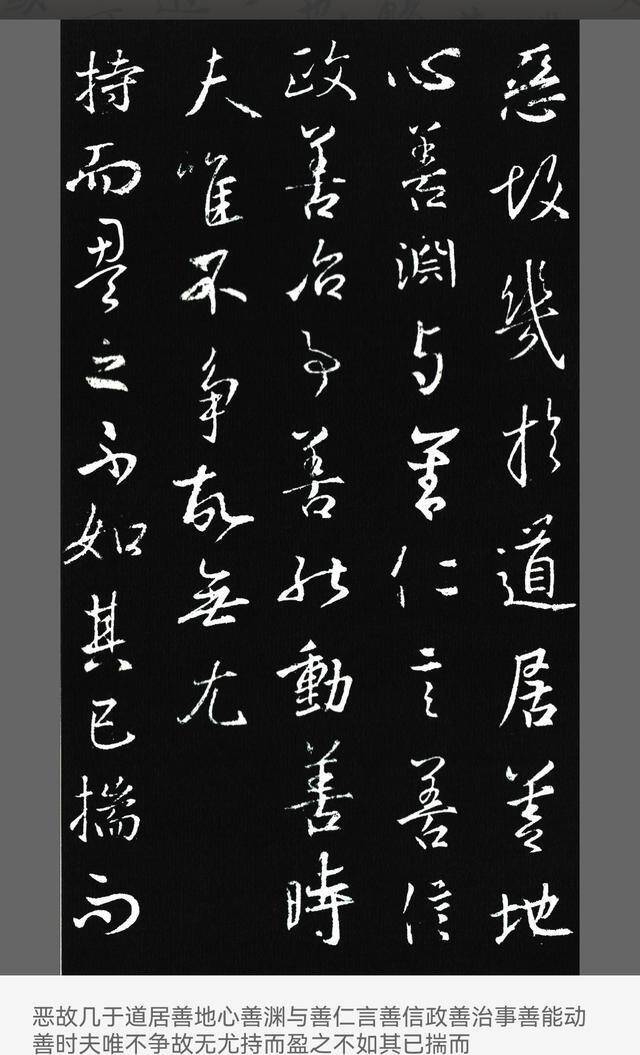 恶故幾於道居善地
心善淵与善仁言善信
政善治事善能動善時
夫唯不争故無尤
持而盈之不如其已揣而
恶故几于道居善地心善渊与善仁言善信政善治事善能动
善时夫唯不争故无尤持而盈之不如其已揣而